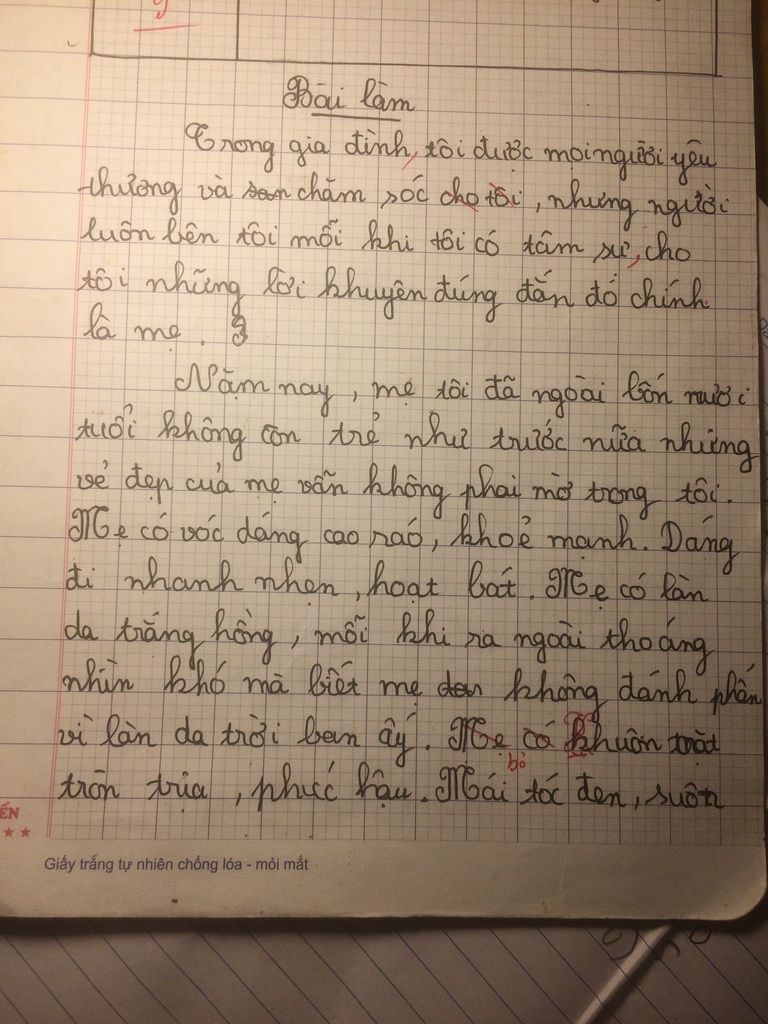 Bài làm
Trong gia đình, tôi được mọi người yêu
thương và chăm sóc cho tôi, nhưng người
luôn bên tôi mỗi khi tôi có tâm sự, cho
tôi những lời khuyên đúng đắn đó chính
là mẹ.
Năm nay, mẹ tôi đã ngoài bốn mươi
tuổi không còn trẻ như trước nữa nhưng
vẻ đẹp của mẹ vẫn không phai mờ trong tôi.
Mẹ có vóc dáng cao ráo, khoẻ mạnh. Dáng
đi nhanh nhẹn, hoạt bát. Mẹ có làn
da trắng hồng, mỗi khi ra ngoài thoáng
nhìn khó mà biết mẹ không đánh phấn
vì làn da trời ban ấy. Mẹ có Khuôn mặt
bỏ
tròn trịa, phúc hậu. Mái tóc đen, suôn
ẾN
★ ★
Giấy trắng tự nhiên chống lóa - mỏi mắt